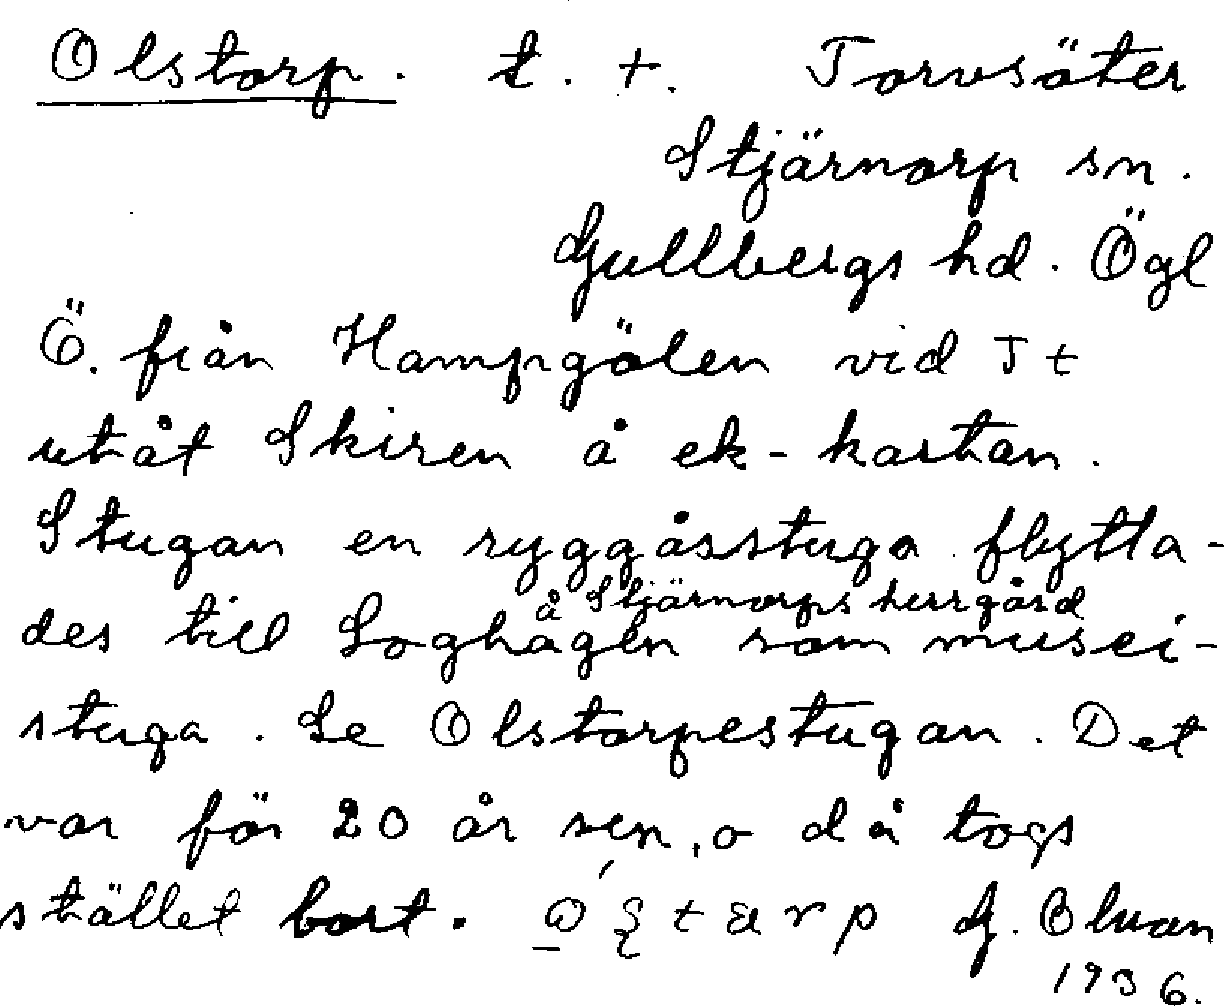 Olstorp. t. +. Torvsäter
Stjärnorp sn.
Gullbergs hd. Ögl
Ö. från Hampgölen vid T t
utåt Skiren å ek-kartan.
Stugan en ryggåsstuga flytta-
å Stjärnorps herrgård
des till Loghagen som musei-
stuga. Se Olstorpestugan. Det
var för 20 år sen, o då togs
stället bort. G. Olvan
1936.